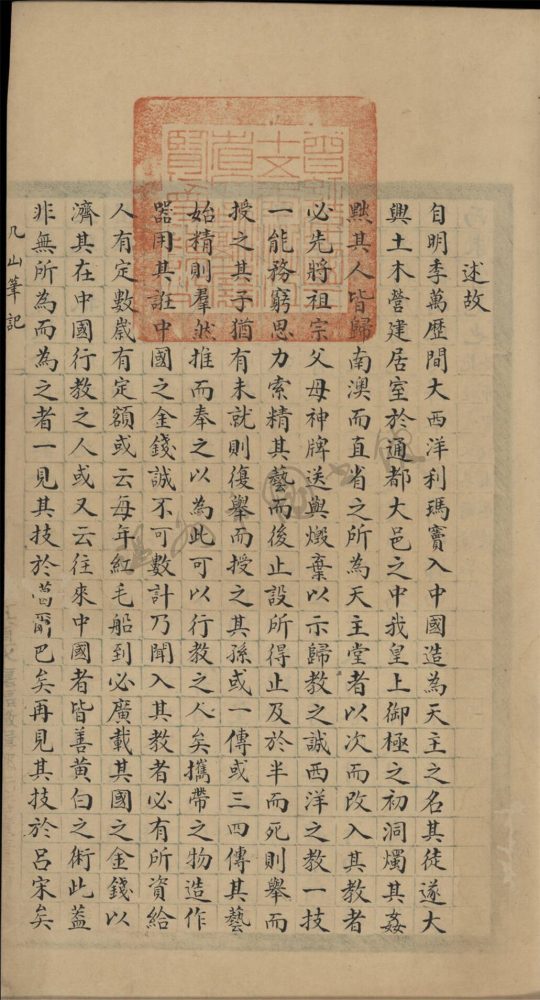 述故
自明季萬歷間大西洋利瑪竇入中國造為天主之名其徒遂大
興土木營建居室於通都大邑之中我皇上御極之初洞燭其姦
黙其人皆歸南澳而直省之所為天主堂者以次而改入其教者
必先將祖宗父母神牌送與燬棄以示歸教之誠西洋之教一技
一能務窮思力索精其藝而後止設所得止及於半而死則舉而
授之其子猶有未就則復舉而授之其孫或一傳或三四傳其藝
始精則羣然推而奉之以為此可以行教之人矣攜帶之物造作
器用其誑中國之金錢誠不可數計乃聞入其教者必有所資給
人有定數歲有定額或云每年紅毛船到必廣載其國之金錢以
濟其在中國行教之人或又云往來中國者皆善黃白之術此蓋
非無所為而為之者一見其技於噶爾巴矣再見其技於呂宋矣
山筆記